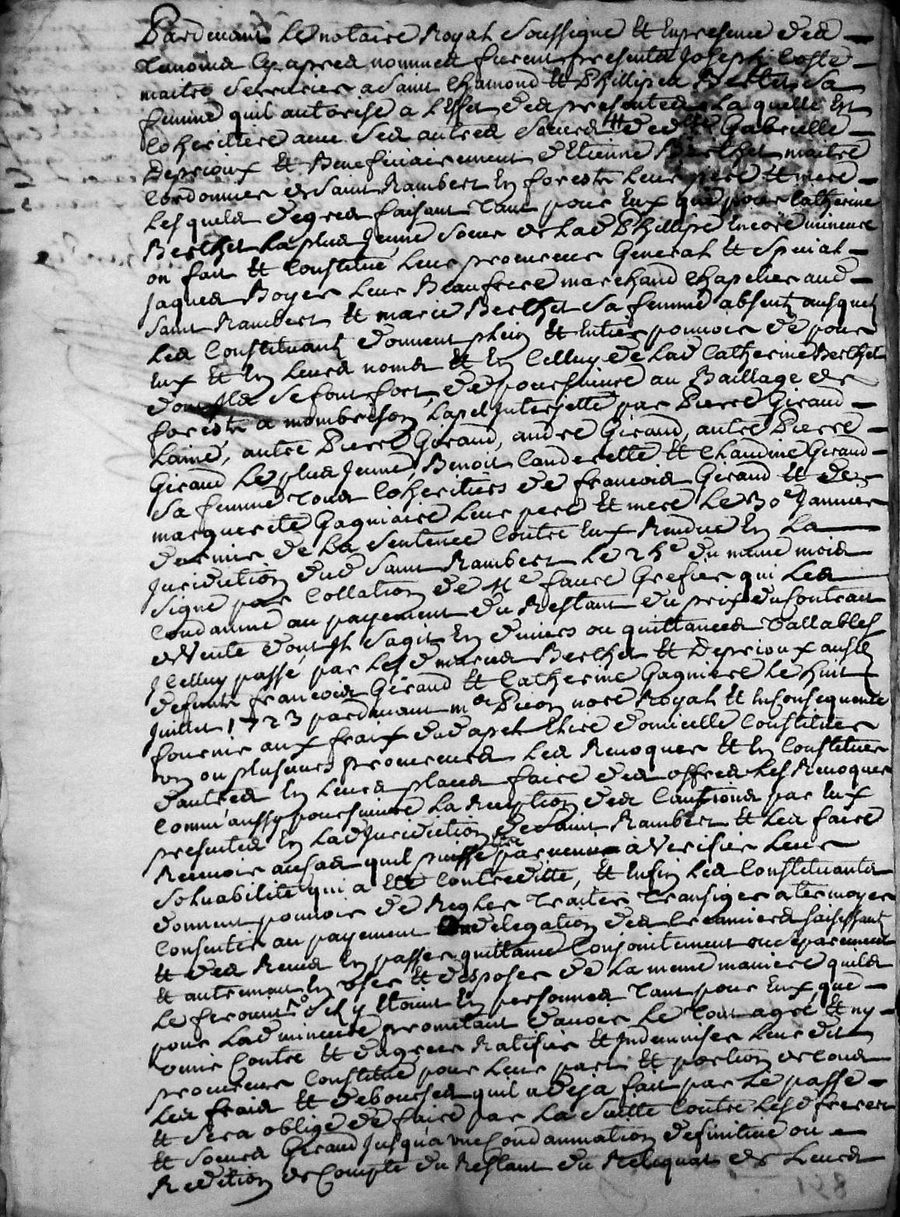 Pardevant Le notaire Royal Soussigné Et Enpresence des
temoins Cy apres nommes furent presents Joseph Coste
maitre Serrurier a Saint Chamond Et Phillipe Berthet Sa
femme quil autorise a L'effet des presentes Laquelle Est
Coheritiere avec Ses autres Soeurs de Gabrielle
Deprioux Et Beneficiairement d'Etienne Berthet maitre
Cordonnier de Saint Rambert En forests Leur pere Et mere
Lesquels de gres faisant tant pour Eux que pour Catherine
Berthet La plus Jeune Soeur de Lad Phillipe Encore mineure
on fait Et Constitué Leur procureur General Et Special
Jaques Boyer Leur Beaufrere marchand Chapelier aud
Saint Rambert Et marie Berthet Sa femme absents ausquels
Les Constituants donnent plein Et Entier pouvoir de pour
Eux Et En Leurs noms Et En Celluy de Lad Catherine Berthet
dont Ils Se font fort de poursuivre au Baillage de
forests a monbrison Lapel Interjetté par Pierre Giraud
Lainé, autre Pierre Giraud, andre Giraud, autre Pierre
Giraud Le plus Jeune Benoit Et Claudine Giraud
Sa femme tous Coheritiers de francois Giraud Et de
marguerite Gagniaire Leur pere Et mere Le 30e Janvier
dernier de La Sentence Contre Eux Rendue En La
Juridiction dud Saint Rambert Le du meme mois
Signé par Collation de Me faure Grefier qui Les
Condamne au payement du Restant du prix du Contrat
de Vente dont Il Sagit En deniers ou quittances Vallables
Icelluy passé par Les d maries Berthet Et Deprioux ausd
defunts francois Giraud Et Catherine Gagniere Le huit
Juillet 1723 pardevant me Pion nore Royal Et En Consequence
fournir aux fraix dud apel Elire domicille Constituer
un ou plusieurs procureurs Les Revoquer Et En Constituer
d'autres En Leurs places faire des offres Les Revoquer
Comm'aussy poursuivre La Reception des Cautions par Eux
presentes En Lad Juridiction de Saint Rambert Et Les faire
Recevoir au cas quil puisse parvenir a Verifier Leur
Solvabilité qui a Eté Contreditte, Et Enfin Les Constituants
donnent pouvoir de Regler Traiter Transiger atermoyer
Consentir au payement delegation des Creanciers Saisissants
Et des Recus En passer quittance Conjointement ou Separement
Et autrement En User Et disposer de La meme maniere quils
Le feroient Sils y Etoient En personnes tant pour Eux que
pour Lad mineure promettant davoir Le tout agré Et ny
venir Contre Et d'agreer Ratifier Et Indemniser Leur dit
procureur Constitué pour Leur part Et portion de tous
Les frais Et debourses quil a Deja fait par Le passé
Et Sera obligé de faire par La Suitte Contre Les d freres
Et Soeurs Giraud Jusqua une Condamnation definitive ou
Redition de Compte du Restant du Reliquat de Leurs